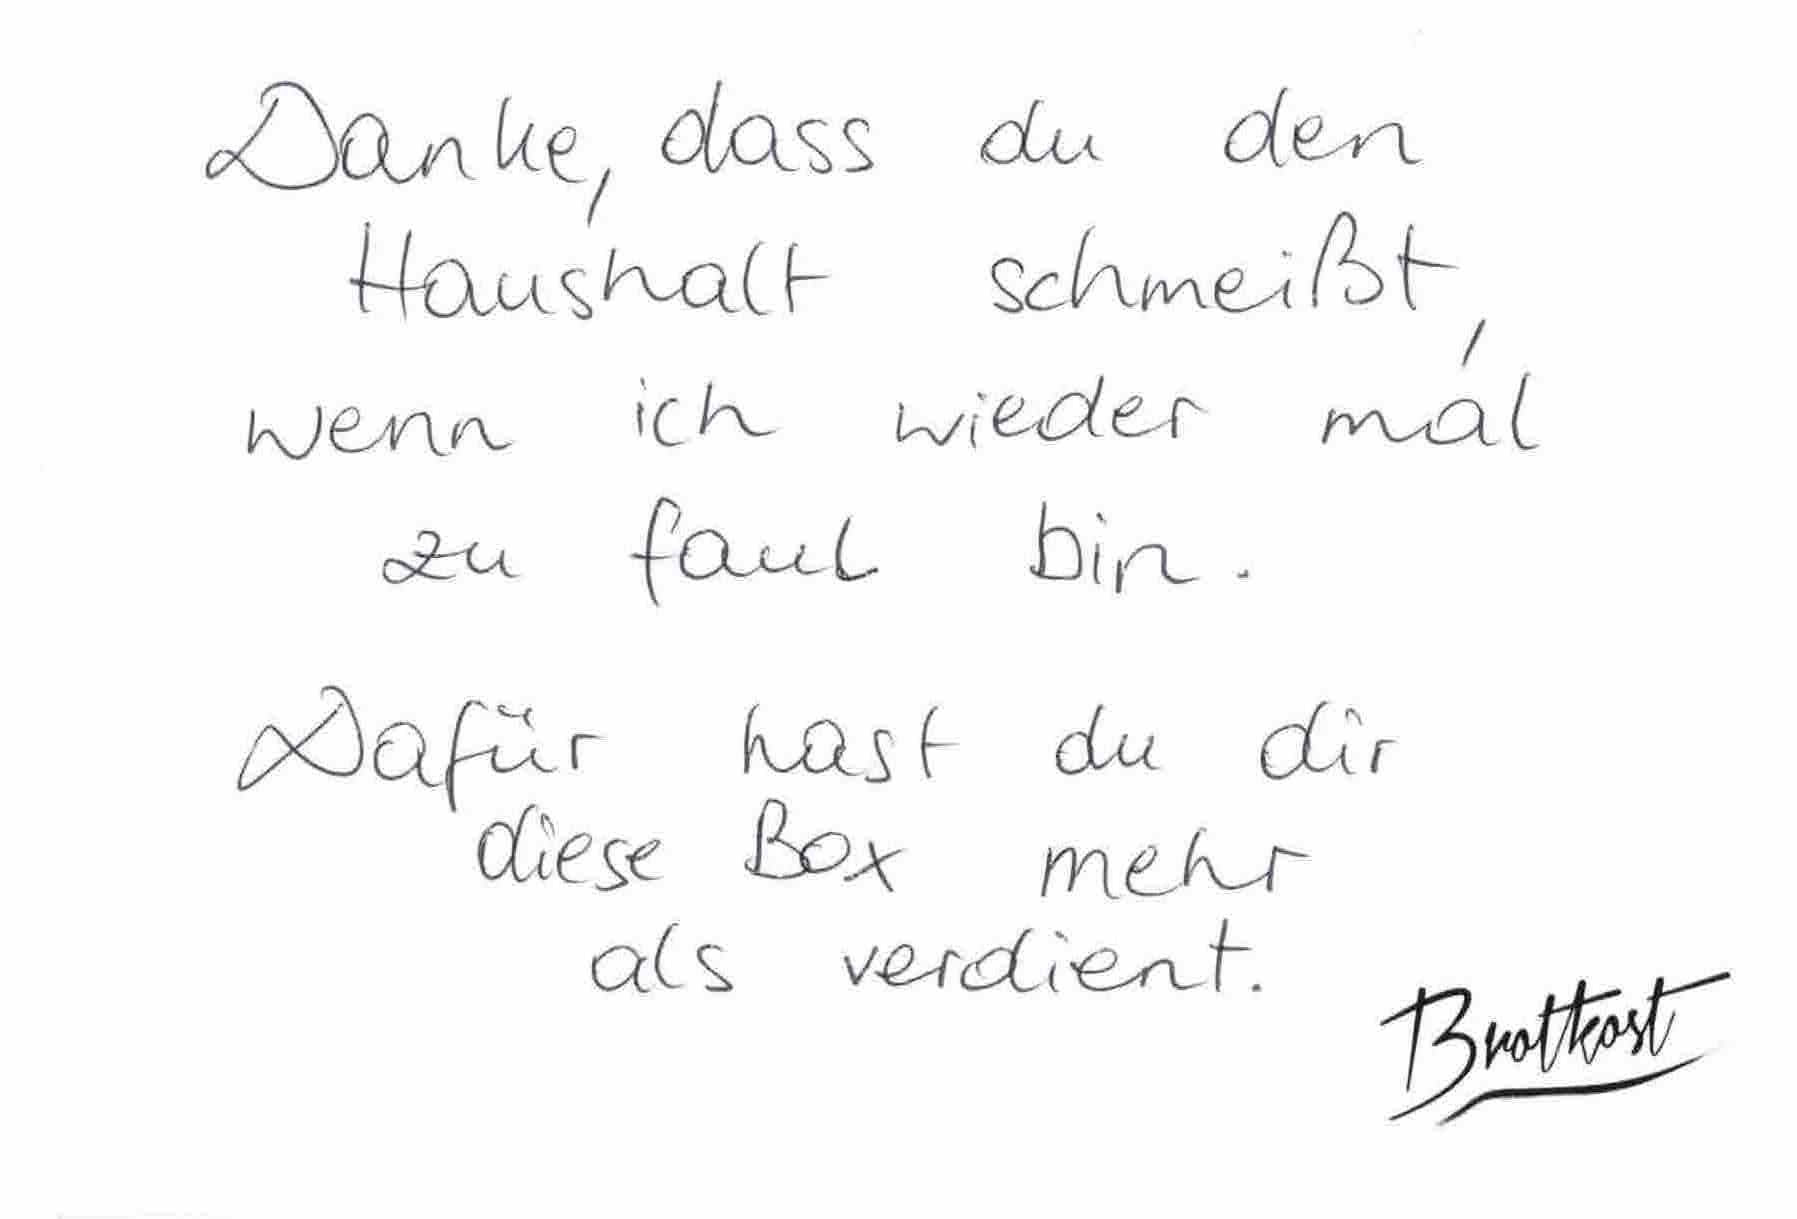 Danke, dass du den
Haushalt schmeißt,
wenn ich wieder mal
zu faul bin.
Dafür hast du dir
diese Box mehr
als verdient.
Brotkost